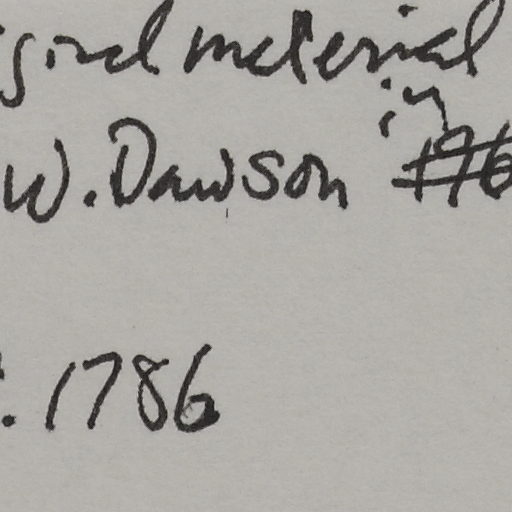 ginal material
in
W. Dawson 196
. 1786